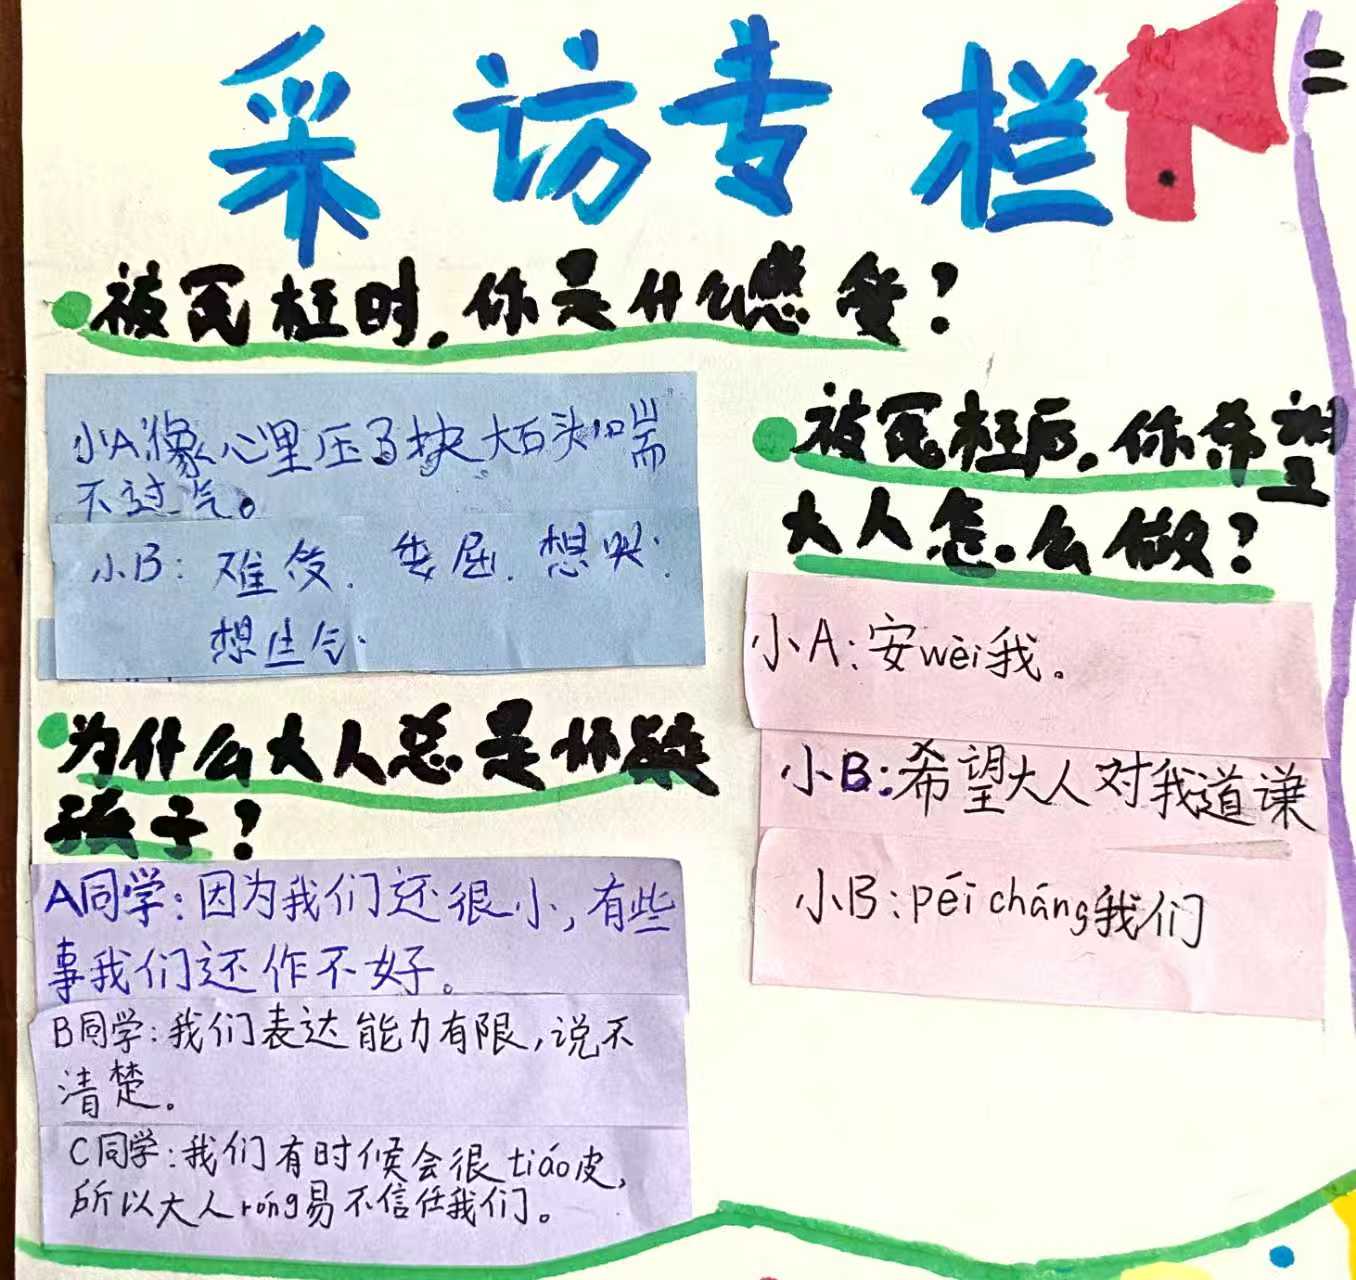 采访专栏
被冤枉时,你是什么感受?
小A:像心里压了块大石头喘
不过气。
小B:难受.委屈.想哭.
想生气.
为什么大人总是怀疑
孩子?
A同学:因为我们还很小,有些
事我们还作不好。
B同学:我们表达能力有限,说不
清楚。
C同学:我们有时候会很tiáo皮,
所以大人róng易不信任我们。
被冤枉后,你希望
大人怎么做?
小A:安wèi我。
小B:希望大人对我道谦
小B:péi cháng我们